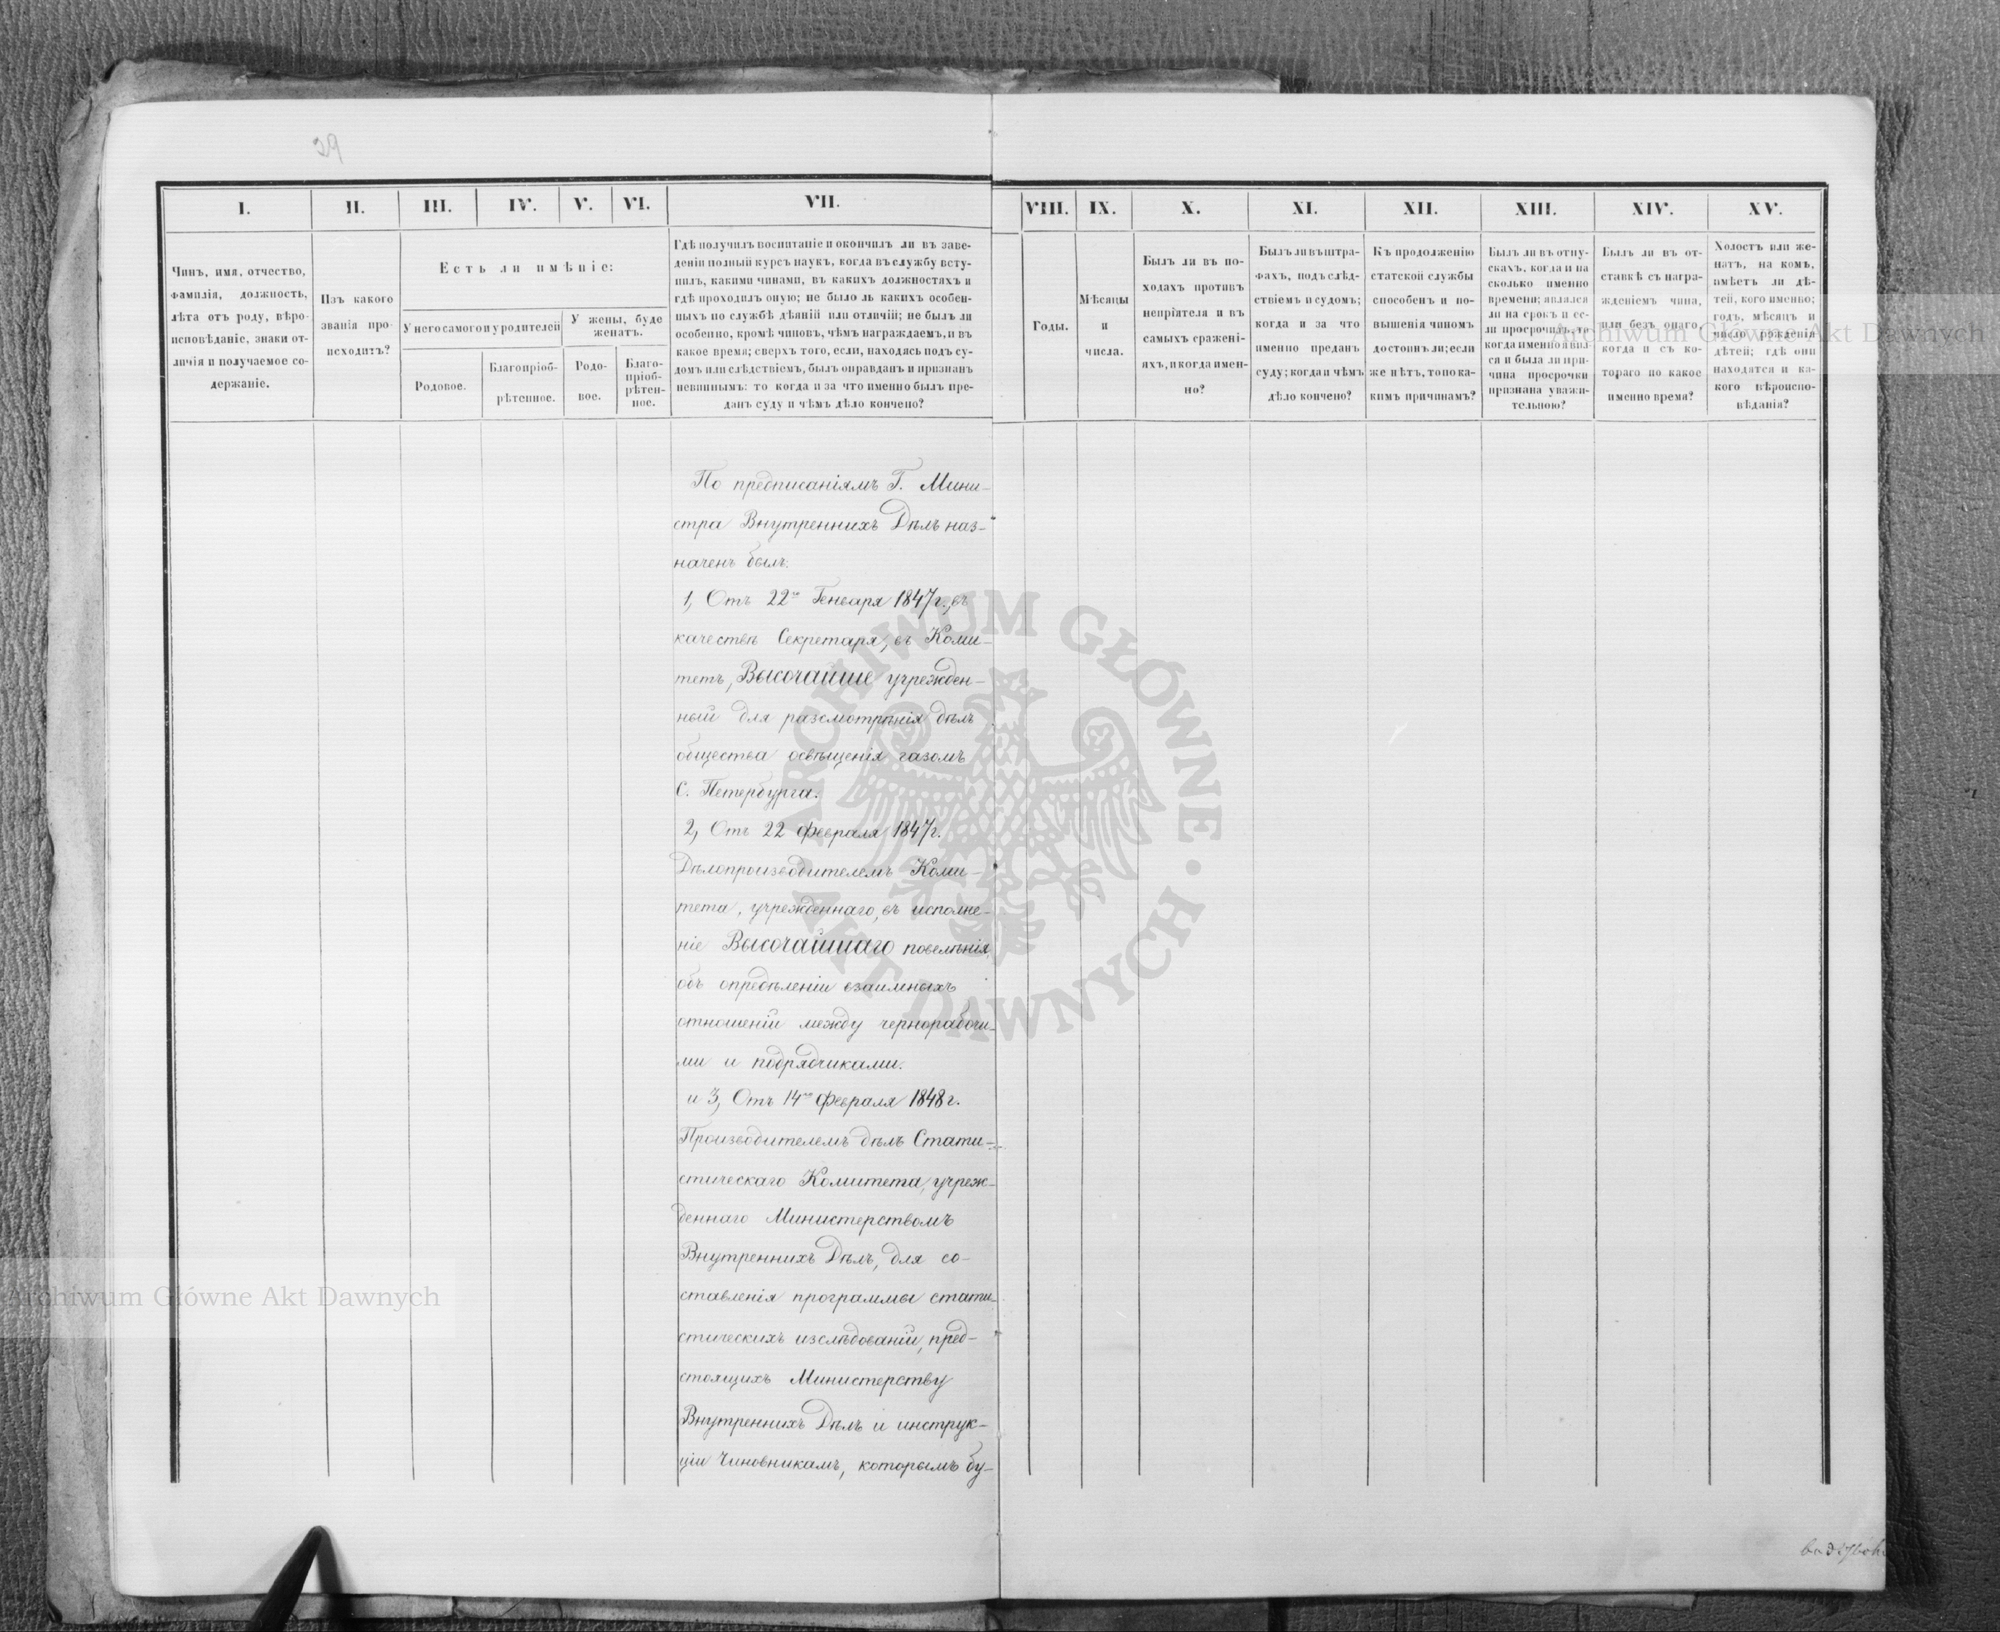 29
I. II. III. IV. V. VI. VII. VIII. IX. X. XI. XII. XIII. XIV. XV.
Чинъ, имя, отчество,
фамилія, должность,
лѣта отъ роду, вѣро-
исповѣданіе, знаки от-
личія и получаемое со-
держаніе.
Изъ какого
званія про-
исходитъ?
Есть ли имѣніе:
У него самого и у родителей
У жены, буде
женатъ.
Родовое.
Благопріоб-
рѣтенное.
Родо-
вое.
Благо-
пріоб-
рѣтен-
ное.
Гдѣ получилъ воспитаніе и окончилъ ли въ заве-
деніи полный курсъ наукъ, когда въ службу всту-
пилъ, какими чинами, въ какихъ должностяхъ и
гдѣ проходилъ оную; не было ль какихъ особен-
ныхъ по службѣ дѣяній или отличій; не былъ ли
особенно, кромѣ чиновъ, чѣмъ награждаемъ, и въ
какое время; сверхъ того, если, находясь подъ су-
домъ или слѣдствіемъ, былъ оправданъ и признанъ
невиннымъ: то когда и за что именно былъ пре-
данъ суду и чѣмъ дѣло кончено?
Годы.
Мѣсяцы
и
числа.
Былъ ли въ по-
ходахъ противъ
непріятеля и въ
самыхъ сражені-
яхъ, и когда имен-
но?
Былъ ли въ штра-
фахъ, подъ слѣд-
ствіемъ и судомъ;
когда и за что
именно преданъ
суду; когда и чѣмъ
дѣло кончено?
Къ продолженію
статской службы
способенъ и по-
вышенія чиномъ
достоинъ ли; если
же нѣтъ, то по ка-
кимъ причинамъ?
Былъ ли въ отпу-
скахъ, когда и на
сколько именно
времени; являлся
ли на срокъ и ес-
ли просрочилъ, то
когда именно явил-
ся и была ли при-
чина просрочки
признана уважи-
тельною?
Былъ ли въ от-
ставкѣ съ награ-
жденіемъ чина,
или безъ онаго,
когда и съ ко-
тораго по какое
именно время?
Холостъ или же-
натъ, на комъ,
имѣетъ ли дѣ-
тей, кого именно;
годъ, мѣсяцъ и
число рожденія
дѣтей; гдѣ они
находятся и ка-
кого вѣроиспо-
вѣданія?
По предписаніямъ Г. Мини-
стра Внутреннихъ Дѣлъ наз-
наченъ былъ:
1, Отъ 22го Генваря 1847 г., въ
качествѣ Секретаря, въ Коми-
тетъ, Высочайше учрежден-
ный для разсмотрѣнія дѣлъ
общества освѣщенія газомъ
С. Петербурга.
2, Отъ 22 Февраля 1847 г.
Дѣлопроизводителемъ Коми-
тета, учрежденнаго, въ исполне-
ніе Высочайшаго повелѣнія
объ опредѣленіи взаимныхъ
отношеній между чернорабочи-
ми и подрядчиками.
и 3, Отъ 14го Февраля 1848 г.
Производителемъ дѣлъ Стати-
стическаго Комитета, учреж-
деннаго Министерствомъ
Внутреннихъ Дѣлъ, для со-
ставленія программы стати-
стическихъ изслѣдованій, пред-
стоящихъ Министерству
Внутреннихъ Дѣлъ и инструк-
ціи Чиновникамъ, которымъ бу-
Archiwum Główne Akt Dawnych
Archiwum Główne Akt Dawnych
ARCHIWUM GŁÓWNE · AKT DAWNYCH ·